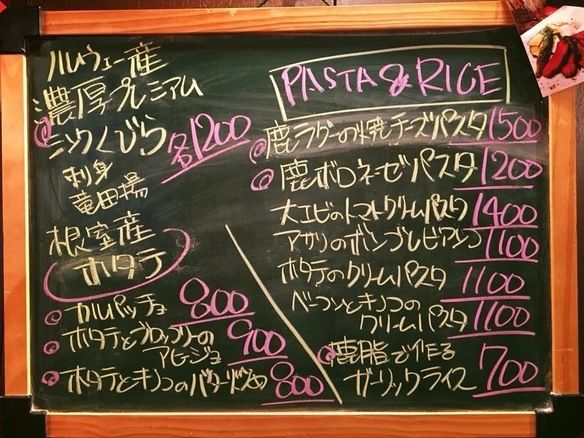 ノルウェー産
濃厚プレミアム
ミンククジラ 各1200
刺身
竜田揚
根室産
ホタテ
カルパッチョ 800
ホタテとブロッコリーの
アヒージョ 900
ホタテとキノコのバター炒め 800
PASTA & RICE
鹿ラグーの焼チーズパスタ 1500
鹿ボロネーゼパスタ 1200
大エビのトマトクリームパスタ 1400
アサリのボンゴレビアンコ 1100
ホタテのクリームパスタ 1100
ベーコンとキノコの
クリームパスタ 1100
鹿脂で作る
ガーリックライス 700